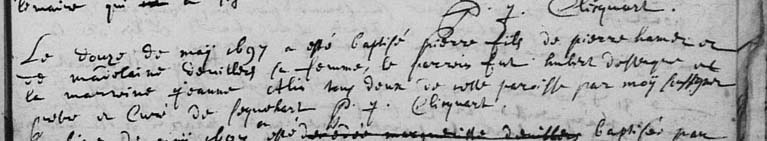 P. J. Clicquart.
Le douze de maÿ 1697 a esté baptisé pierre fils de pierre hamez et
de madelaine deuillers sa femme, le parrein fut hubert et
la marreine Jeanne Alis tous deux de cette paroisse par moÿ soussigné
prebtre et Curé de P. J. Clicquart
de maÿ 1697 a esté margueritte deuillers baptisée par